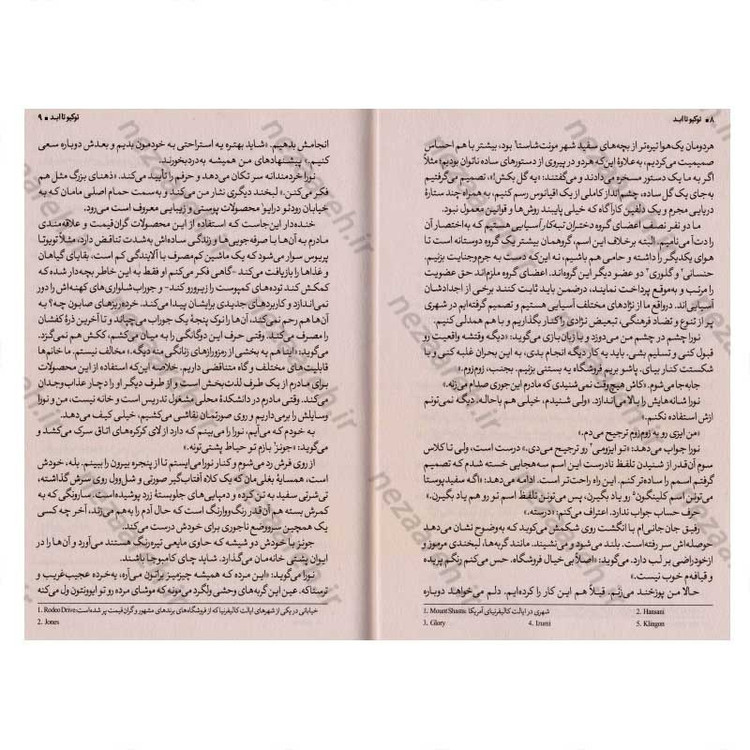 ۸ ■ توکیو تا ابد
هردومان یک‌هوا تیره‌تر از بچه‌های سفید شهر مونت‌شاستا¹ بود، بیشتر با هم احساس
صمیمیت می‌کردیم، به‌علاوهٔ این‌که هر دو در پیروی از دستورهای ساده ناتوان بودیم؛ مثلاً
اگر به ما یک دستور مسخره می‌دادند و می‌گفتند: «یه گل بکش!»، تصمیم می‌گرفتیم
به‌جای یک گل ساده، چشم‌انداز کاملی از یک اقیانوس رسم کنیم، به همراه چند ستارهٔ
دریایی مجرم و یک دلفین کارآگاه که خیلی پایبند روش‌ها و قوانین معمول نبود.
ما دو نفر نصف اعضای گروه دختران تبه‌کار آسیایی هستیم که به‌اختصار آن
را دت‌آ می‌نامیم. البته برخلاف این اسم، گروهمان بیشتر یک گروه دوستانه است تا
هوای یکدیگر را داشته و حامی هم باشیم، نه این‌که دست به جرم‌وجنایت بزنیم.
حنسانی² و گلوری³ دو عضو دیگر این گروه‌اند. اعضای گروه ملزم‌اند حق عضویت
را مرتب و به‌موقع پرداخت نمایند، درضمن باید ثابت کنند برخی از اجدادشان
آسیایی‌اند. درواقع ما از نژادهای مختلف آسیایی هستیم و تصمیم گرفته‌ایم در شهری
پر از تنوع و تضاد فرهنگی، تبعیض نژادی را کنار بگذاریم و با هم همدلی کنیم.
نورا چشم در چشم من می‌دوزد و با زبان‌بازی می‌گوید: «دیگه وقتشه واقعیت رو
قبول کنی و تسلیم بشی. باید یه کار دیگه انجام بدی، به این بحران غلبه کنی و با
شکستت کنار بیای. پاشو بریم فروشگاه یه بستنی بزنیم. بجنب، زوم‌زوم.»
جابه‌جا می‌شوم. «کاش هیچ‌وقت نمی‌شنیدی که مادرم این‌جوری صدام می‌زنه.»
نورا شانه‌هایش را بالا می‌اندازد. «ولی شنیدم، خیلی هم باحاله، دیگه نمی‌تونم
ازش استفاده نکنم.»
«من ایزی رو به زوم‌زوم ترجیح می‌دم.»
نورا جواب می‌دهد: «تو ایزومی⁴ رو ترجیح می‌دی.» درست است، ولی تا کلاس
سوم آن‌قدر از شنیدن تلفظ نادرست این اسم سه‌هجایی خسته شدم که تصمیم
گرفتم اسمم را ساده‌تر کنم. این راه راحت‌تر است. ادامه می‌دهد: «اگه سفیدپوستا
می‌تونن اسم کلینگون⁵ رو یاد بگیرن، پس می‌تونن تلفظ اسم تو رو هم یاد بگیرن.»
حرف حساب جواب ندارد. اعتراف می‌کنم: «درسته.»
رفیق جان‌جانی‌ام با انگشت روی شکمش می‌کوبد که به‌وضوح نشان می‌دهد
حوصله‌اش سر رفته است. بلند می‌شود و می‌نشیند. مانند گربه‌ها، لبخندی مرموز و
ازخودراضی بر لب دارد. می‌گوید: «اصلاً بی‌خیال فروشگاه. حس می‌کنم رنگم پریده
و قیافه‌م خوب نیست.»
حالا من پوزخند می‌زنم. قبلاً هم این کار را کرده‌ایم. دلم می‌خواهد دوباره
1. Mount Shasta: شهری در ایالت کالیفرنیای آمریکا 2. Hansani
3. Glory 4. Izumi 5. Klingon
توکیو تا ابد ■ ۹
انجامش بدهیم. «شاید بهتره یه استراحتی به خودمون بدیم و بعدش دوباره سعی
کنیم.» پیشنهادهای من همیشه به‌دردبخورند.
نورا خردمندانه سر تکان می‌دهد و حرفم را تأیید می‌کند. «ذهنای بزرگ مثل هم
فکر می‌کنن.» لبخند دیگری نثار من می‌کند و به‌سمت حمام اصلی مامان که به
خیابان رودئو درایو¹ محصولات پوستی و زیبایی معروف است می‌رود.
خنده‌دار این‌جاست که استفاده از این محصولات گران‌قیمت و علاقه‌مندی
مادرم به آن‌ها با صرفه‌جویی‌ها و زندگی ساده‌اش به‌شدت تناقض دارد، مثلاً تویوتا
پریوس سوار می‌شود که یک ماشین کم‌مصرف با آلایندگی کم است، بقایای گیاهان
و غذاها را بازیافت می‌کند -گاهی فکر می‌کنم او فقط به این خاطر بچه‌دار شده که
کمکش کند توده‌های کمپوست را زیرورو کند- و جوراب شلواری‌های کهنه‌اش را دور
نمی‌اندازد و کاربردهای جدیدی برایشان پیدا می‌کند. خرده‌ریزهای صابون چه؟ به
آن‌ها هم رحم نمی‌کند، آن‌ها را نوک پنجهٔ یک جوراب می‌چپاند و تا آخرین ذرهٔ کفشان
را مصرف می‌کند. وقتی حرف این دوگانگی را به میان می‌کشم، ککش هم نمی‌گزد.
می‌گوید: «اینا هم یه بخشی از رمزورازهای زنانگی منه دیگه.» مخالف نیستم. ما خانم‌ها
قابلیت‌های مختلف و گاه متناقضی داریم. خلاصه این‌که استفاده از این محصولات
برای مادرم از یک طرف لذت‌بخش است و از طرف دیگر او را دچار عذاب‌وجدان
می‌کند. وقتی مادرم در دانشکدهٔ محلی مشغول تدریس است و خانه نیست، من و نورا
وسایلش را برمی‌داریم و روی صورتمان نقاشی می‌کشیم، خیلی کیف می‌دهد.
به خودم که می‌آیم، نورا را می‌بینم که دارد از لای کرکره‌های اتاق سرک می‌کشد و
می‌گوید: «جونز² بازم تو حیاط پشتی‌تونه.»
از روی فرش رد می‌شوم و کنار نورا می‌ایستم تا از پنجره بیرون را ببینم. بله، خودش
است، همسایهٔ بغلی‌مان که یک کلاه آفتاب‌گیر صورتی و شل‌ول روی سرش گذاشته،
تی‌شرتی سفید به تن کرده و دمپایی‌های جلوبستهٔ زرد پوشیده است. سارونگی که به
کمرش بسته هم آن‌قدر رنگ‌ووارنگ است که حال آدم را به‌هم می‌زند، آخر چه کسی
یک همچین سرووضع ناجوری برای خودش درست می‌کند.
جونز با خودش دو شیشه که حاوی مایعی تیره‌رنگ هستند می‌آورد و آن‌ها را در
ایوان پشتی خانه‌مان می‌گذارد. شاید چای کامبوجا باشند.
نورا می‌گوید: «این مرده که همیشه چیزمیز براتون می‌آره، یه‌خرده عجیب‌غریب و
ترسناکه. عین این گربه‌های وحشی ولگرد می‌مونه که موشای مرده رو تو ایوونتون ول می‌کنه
1. Rodeo Drive: خیابانی در یکی از شهرهای ایالت کالیفرنیا که از فروشگاه‌های برندهای مشهور و گران‌قیمت پر شده است
2. Jones
nezaareh.ir